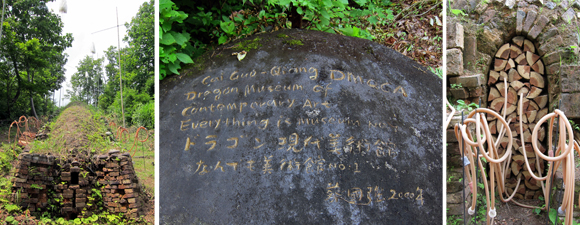 Cai Guo-Qiang DMoCA
Dragon Museum of
Contemporary Art
Everything is Museum No.1
ドラゴン現代美術館
なんでも美術館 NO.1
蔡國強 2000年